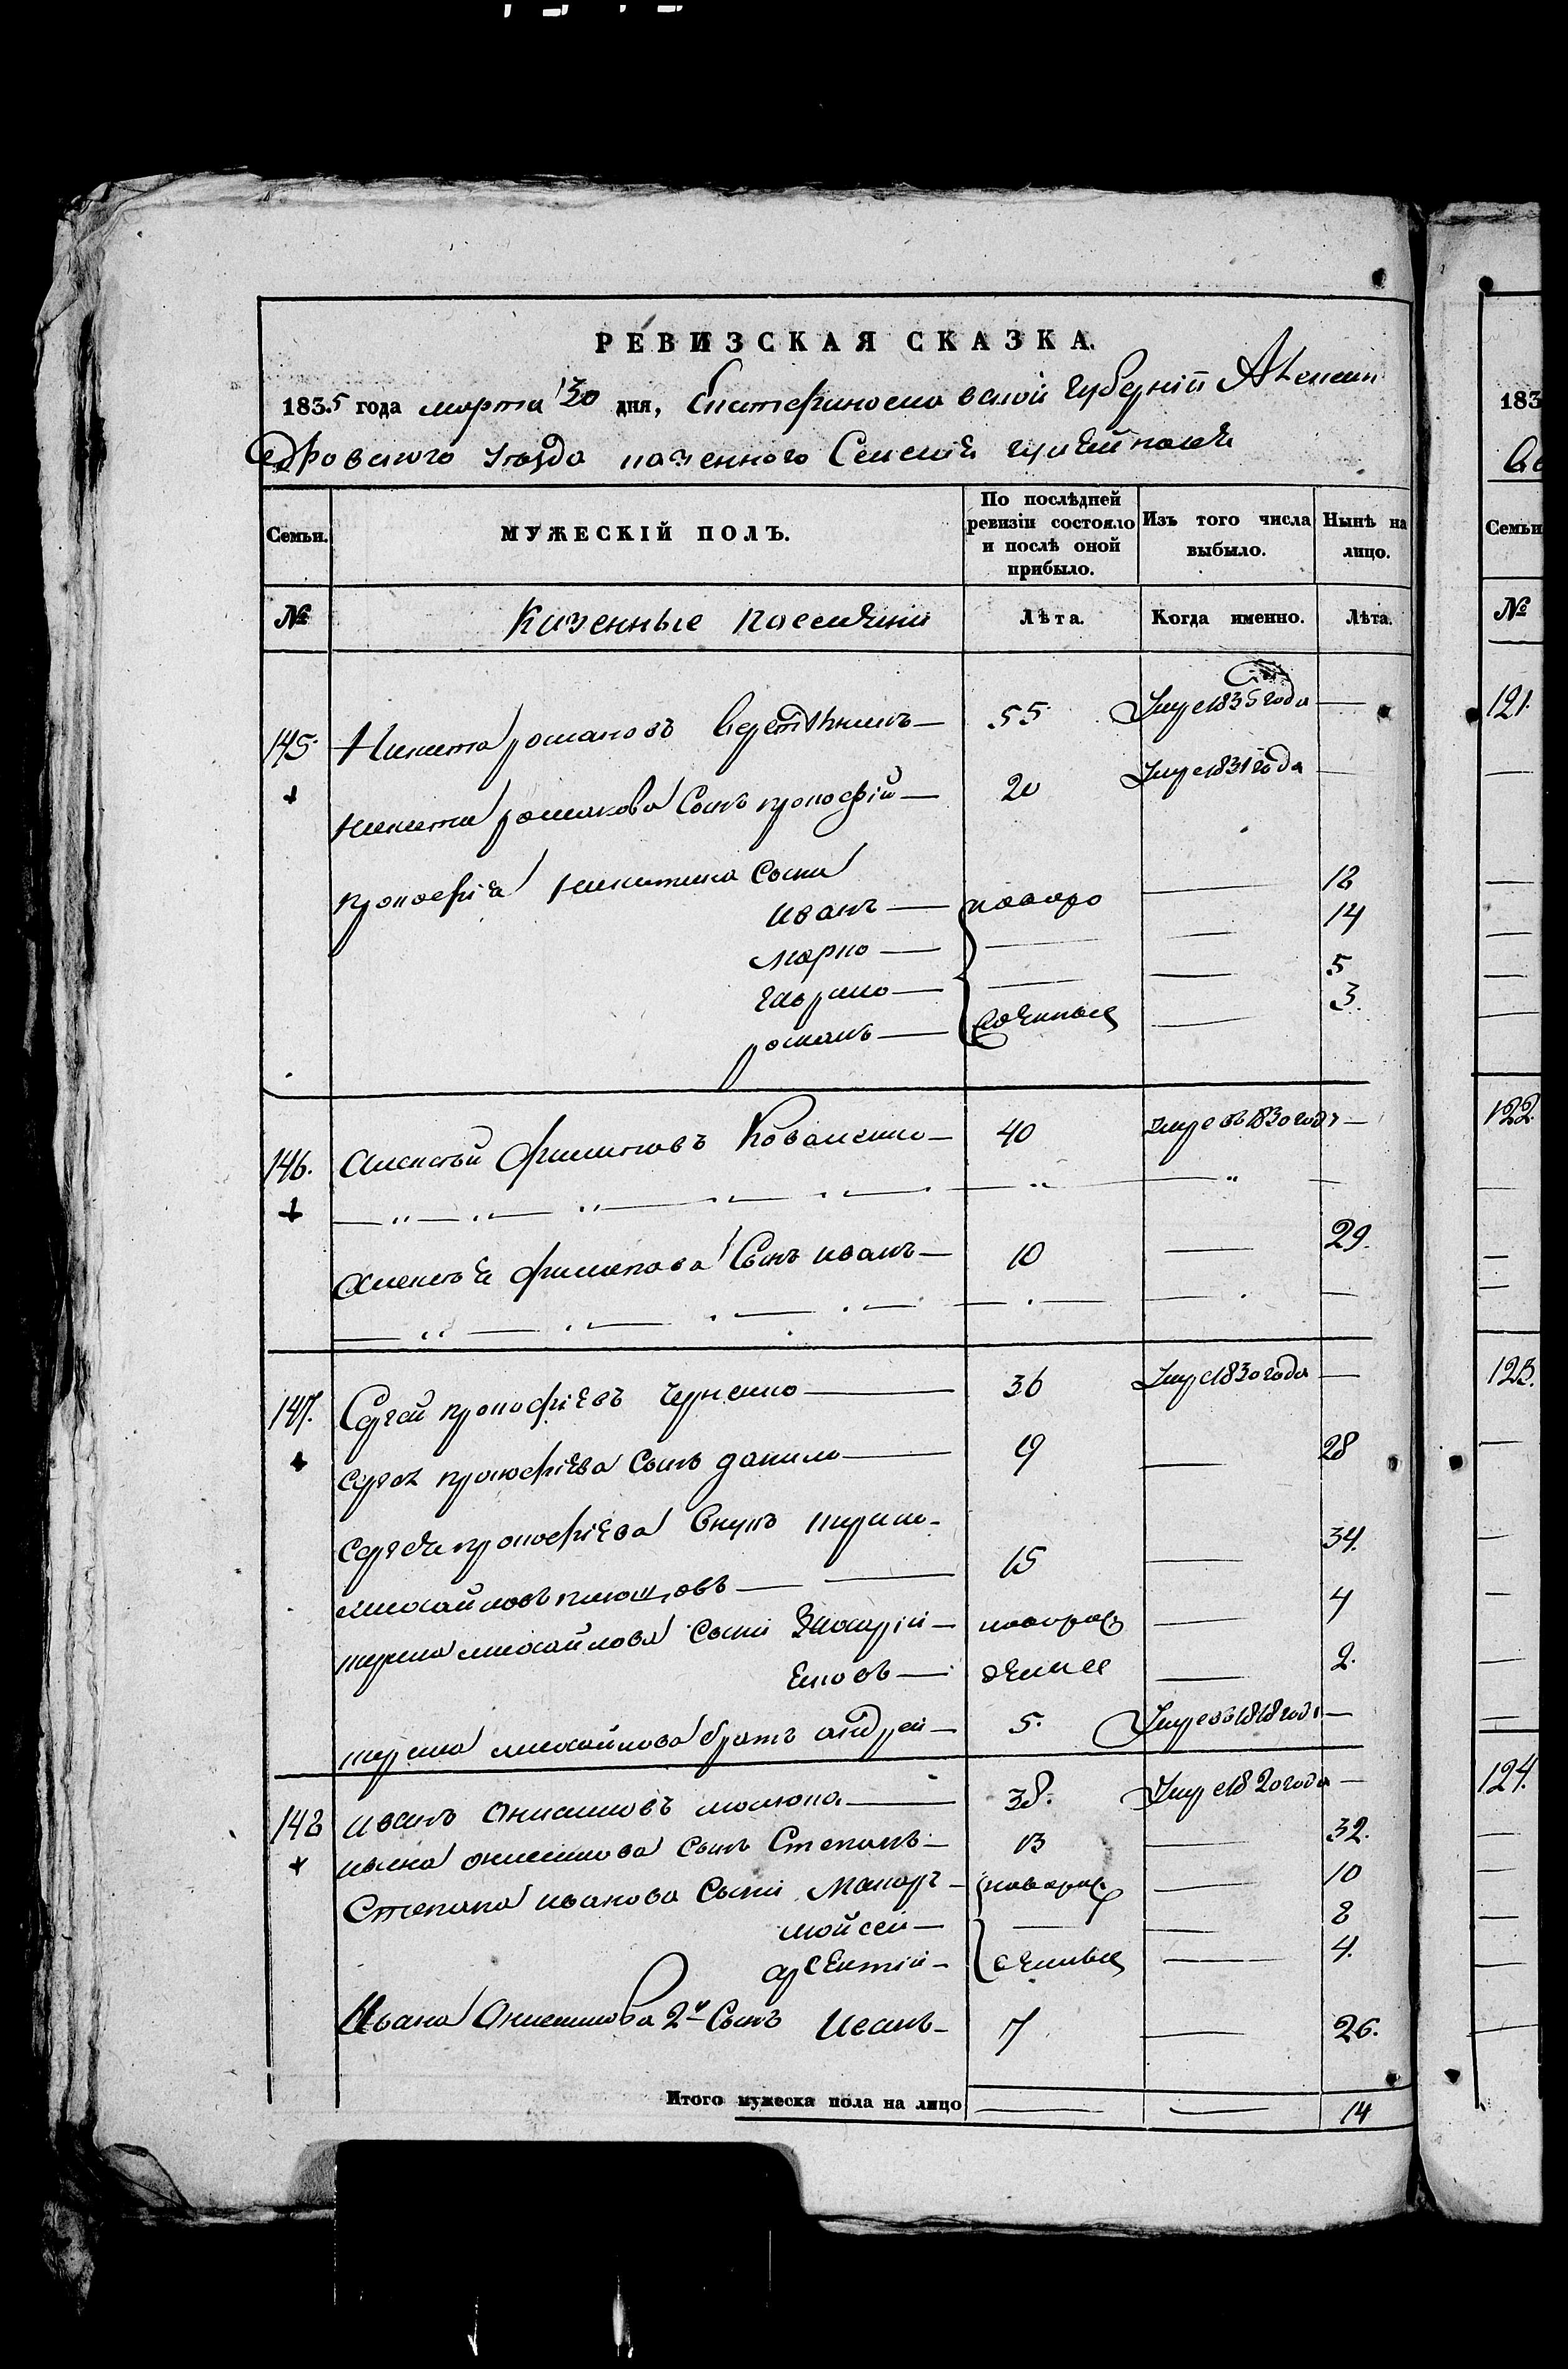 РЕВИЗСКАЯ СКАЗКА.
1835 года марта 30 дня, Екатеринославской Губерніи Алексан
дровского уезда казенного Селенія гуляйполя
Семьи. МУЖЕСКІЙ ПОЛЪ. По послѣдней ревизіи состояло и послѣ оной прибыло. Изъ того числа выбыло. Нынѣ на лицо.
№ Казенные поселяни Лѣта. Когда именно. Лѣта.
145 Никита романовъ 55 Умре 1835 года —
+ никиты романова Сынъ прокофій — 20 Умре 1831 года —
прокофія никитина Сыни
иванъ — новоро — 12
марко — — — 14
гаврило — — — 5
романъ — жденные — 3.
146. Алексѣй филиповъ Коваленко — 40 умре въ 1830 годѣ —
+
Алексѣя филипова Сынъ иванъ — 10 — 29.
147. Сергей прокофіевъ черненко — 36 Умре 1830 года —
+ сергея прокофіева Сынъ данило — 19 — 28
сергея прокофіева внукъ
михайловъ — 15 — 34.
михайлова Сыни — новорож — 4
яковъ — денние — 2.
михайлова братъ андрей — 5. Умре въ 1818 годѣ —
148 иванъ Онисимовъ — 38. Умре 1820 года —
+ ивана онисимова сынъ Степанъ — 13 — 32.
Степана иванова Сыни Макаръ — новорож — 10
мойсей — — — 8
арсентій — денные — 4.
Ивана Онисимова 2й Сынъ Иванъ — 7 — 26.
Итого мужеска пола на лицо — — 14
183
Семьи
№
121.
122.
123.
124.